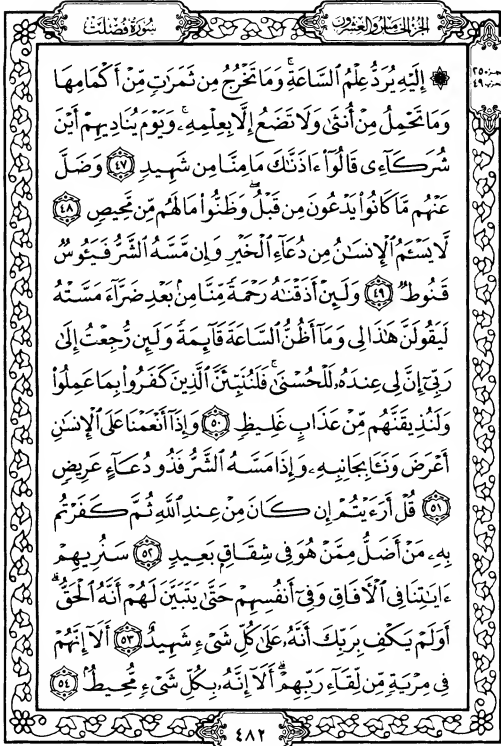 سُورَةُ فُصِّلَتْ
الجُزْءُ الخَامِسُ وَالعِشْرُونَ
۞ إِلَيْهِ يُرَدُّ عِلْمُ ٱلسَّاعَةِۚ وَمَا تَخْرُجُ مِن ثَمَرَٰتٍ مِّنْ أَكْمَامِهَا
وَمَا تَحْمِلُ مِنْ أُنثَىٰ وَلَا تَضَعُ إِلَّا بِعِلْمِهِۦۚ وَيَوْمَ يُنَادِيهِمْ أَيْنَ
شُرَكَآءِى قَالُوٓا۟ ءَاذَنَّـٰكَ مَا مِنَّا مِن شَهِيدٍ ٤٧ وَضَلَّ
عَنْهُم مَّا كَانُوا۟ يَدْعُونَ مِن قَبْلُۖ وَظَنُّوا۟ مَا لَهُم مِّن مَّحِيصٍ ٤٨
لَّا يَسْـَٔمُ ٱلْإِنسَـٰنُ مِن دُعَآءِ ٱلْخَيْرِ وَإِن مَّسَّهُ ٱلشَّرُّ فَيَـُٔوسٌ
قَنُوطٌ ٤٩ وَلَئِنْ أَذَقْنَـٰهُ رَحْمَةً مِّنَّا مِنۢ بَعْدِ ضَرَّآءَ مَسَّتْهُ
لَيَقُولَنَّ هَـٰذَا لِى وَمَآ أَظُنُّ ٱلسَّاعَةَ قَآئِمَةً وَلَئِن رُّجِعْتُ إِلَىٰ
رَبِّىٓ إِنَّ لِى عِندَهُۥ لَلْحُسْنَىٰۚ فَلَنُنَبِّئَنَّ ٱلَّذِينَ كَفَرُوا۟ بِمَا عَمِلُوا۟
وَلَنُذِيقَنَّهُم مِّنْ عَذَابٍ غَلِيظٍ ٥٠ وَإِذَآ أَنْعَمْنَا عَلَى ٱلْإِنسَـٰنِ
أَعْرَضَ وَنَـَٔا بِجَانِبِهِۦ وَإِذَا مَسَّهُ ٱلشَّرُّ فَذُو دُعَآءٍ عَرِيضٍ
٥١ قُلْ أَرَءَيْتُمْ إِن كَانَ مِنْ عِندِ ٱللَّهِ ثُمَّ كَفَرْتُم
بِهِۦ مَنْ أَضَلُّ مِمَّنْ هُوَ فِى شِقَاقٍۭ بَعِيدٍ ٥٢ سَنُرِيهِمْ
ءَايَـٰتِنَا فِى ٱلْـَٔافَاقِ وَفِىٓ أَنفُسِهِمْ حَتَّىٰ يَتَبَيَّنَ لَهُمْ أَنَّهُ ٱلْحَقُّۗ
أَوَلَمْ يَكْفِ بِرَبِّكَ أَنَّهُۥ عَلَىٰ كُلِّ شَىْءٍ شَهِيدٌ ٥٣ أَلَآ إِنَّهُمْ
فِى مِرْيَةٍ مِّن لِّقَآءِ رَبِّهِمْۗ أَلَآ إِنَّهُۥ بِكُلِّ شَىْءٍ مُّحِيطٌۢ ٥٤
٤٨٢